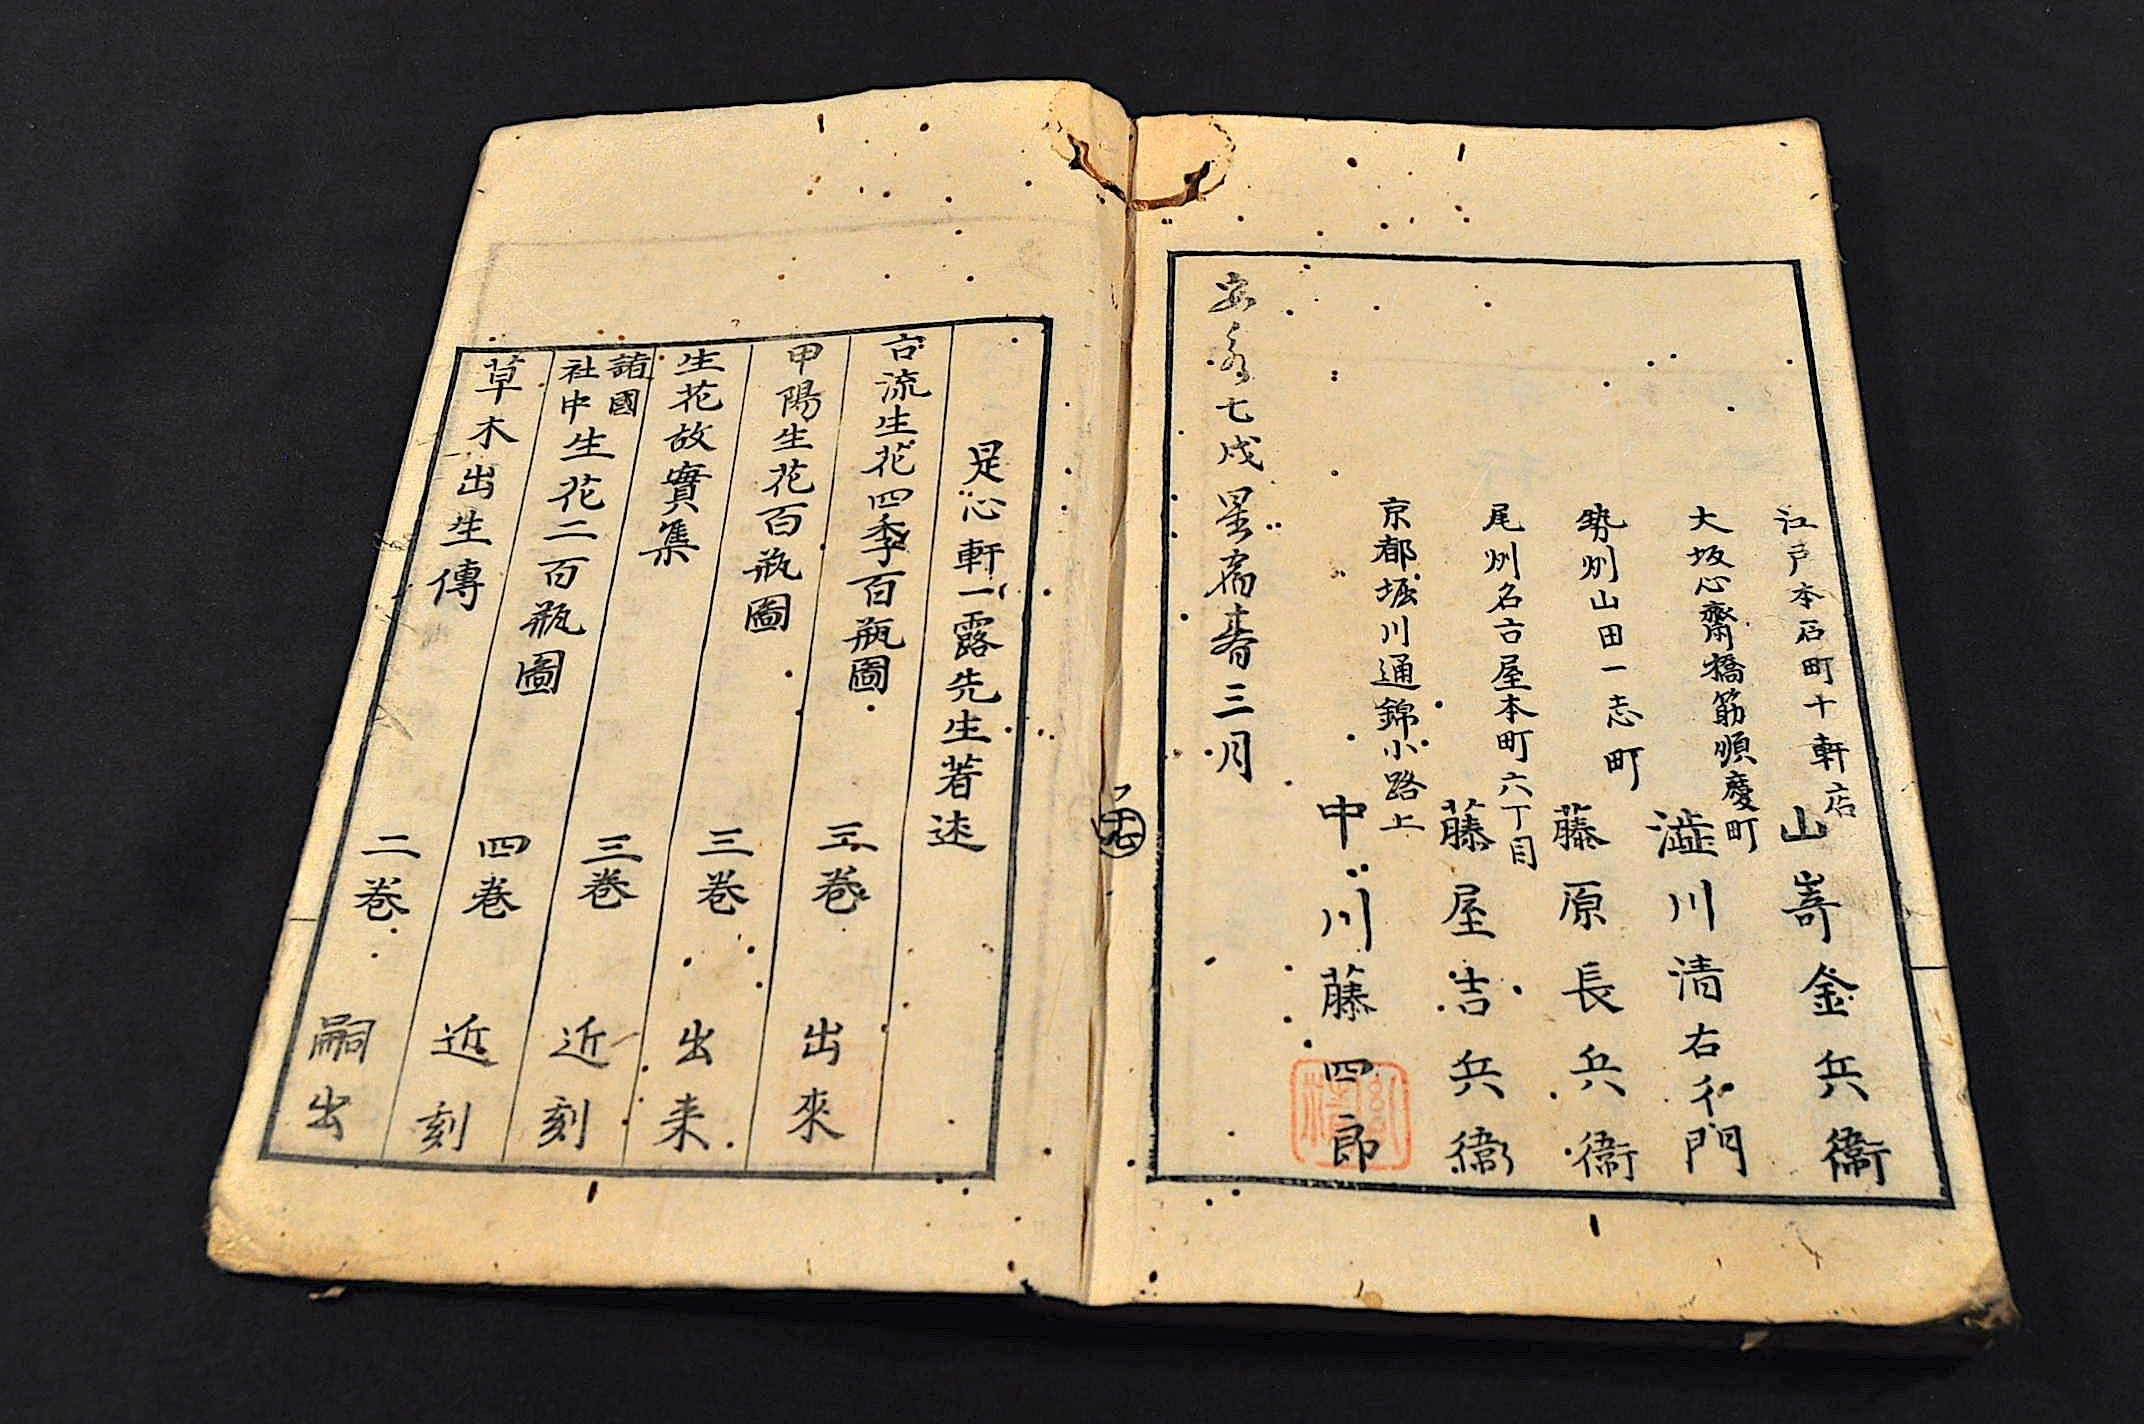 江戸本石町十軒店 山嵜金兵衞
大坂心齋橋筋順慶町 澁川清右衛門
勢州山田一志町 藤原長兵衞
尾州名古屋本町六丁目 藤屋吉兵衞
京都堀川通錦小路上 中川藤四郎
安永七戊星春三月
是心軒一露先生著述
古流生花四季百瓶圖 三巻 出來
甲陽生花百瓶圖 三巻 出来
生花故實集 三巻 近刻
諸國社中生花二百瓶圖 四巻 近刻
草木出生傳 二巻 嗣出